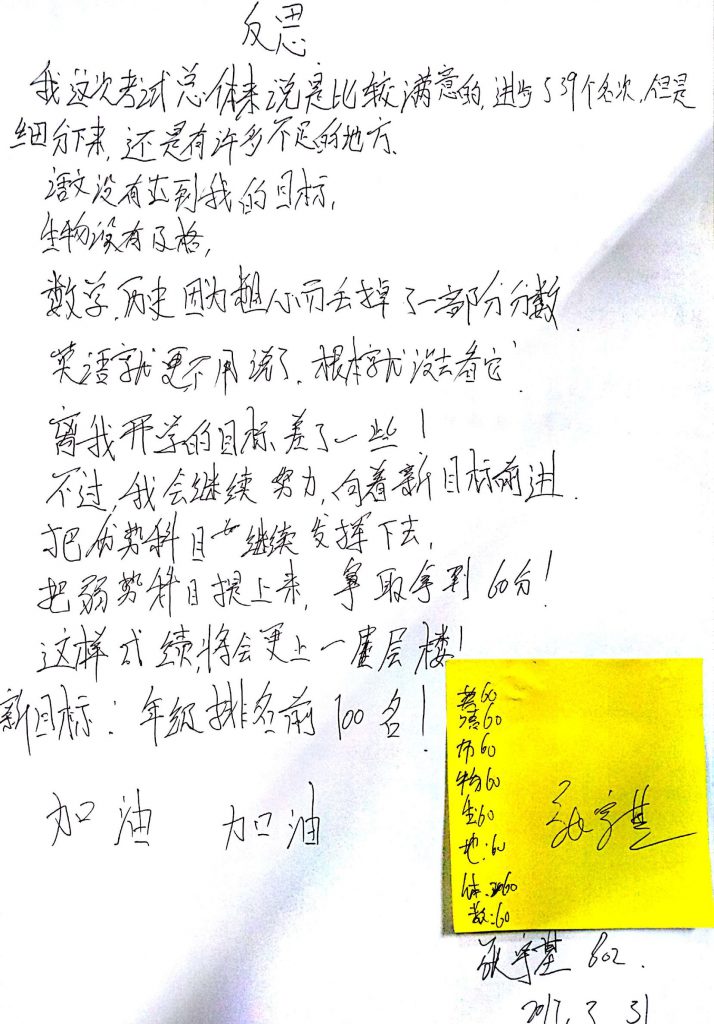 反思
我这次考试总体来说是比较满意的,进步了39个名次.但是
细分下来,还是有许多不足的地方.
语文没有达到我的目标,
生物没有及格,
数学,历史因为粗心而丢掉了一部分分数.
英语就更不用说了.根本就没去看它.
离我开学的目标差了一些!
不过,我会继续努力,向着新目标前进.
把优势科目继续发挥下去,
把弱势科目提上来,拿到60分!
这样成绩将会更上一层楼!
新目标:年级排名前100名!
加油 加油
英60
语60
历60
物60
生60
地:60
体:60
数:60
602.
2017.3.31